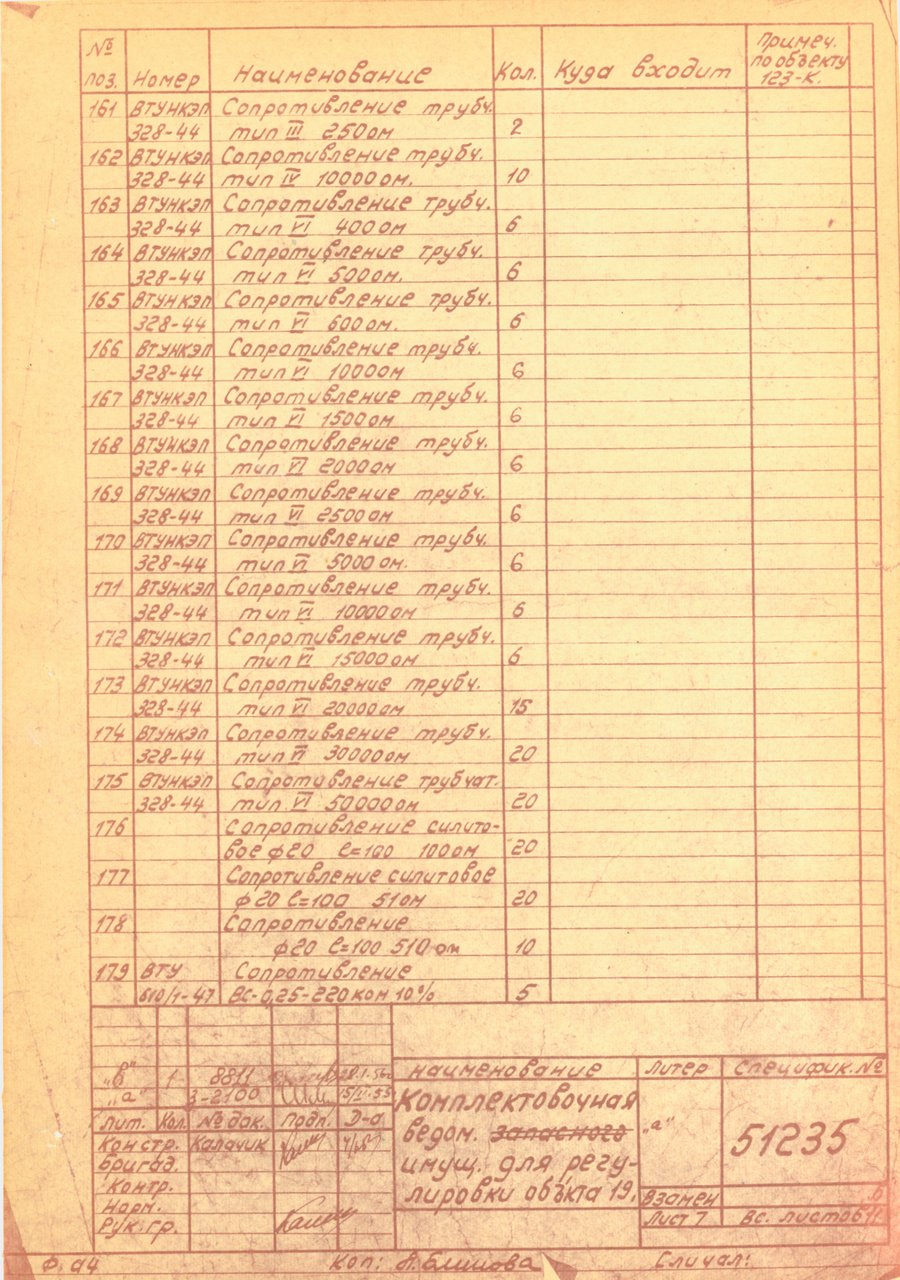 № поз. Номер Наименование Кол. Куда входит Примеч. по объекту 123-К.
161 ВТУНКЭП Сопротивление трубч.
328-44 тип III 250 ом 2
162 ВТУНКЭП Сопротивление трубч.
328-44 тип IV 10000 ом. 10
163 ВТУНКЭП Сопротивление трубч.
328-44 тип VI 400 ом 6
164 ВТУНКЭП Сопротивление трубч.
328-44 тип VI 500 ом. 6
165 ВТУНКЭП Сопротивление трубч.
328-44 тип VI 600 ом. 6
166 ВТУНКЭП Сопротивление трубч.
328-44 тип VI 1000 ом 6
167 ВТУНКЭП Сопротивление трубч.
328-44 тип VI 1500 ом 6
168 ВТУНКЭП Сопротивление трубч.
328-44 тип VI 2000 ом 6
169 ВТУНКЭП Сопротивление трубч.
328-44 тип VI 2500 ом 6
170 ВТУНКЭП Сопротивление трубч.
328-44 тип VI 5000 ом. 6
171 ВТУНКЭП Сопротивление трубч.
328-44 тип VI 10000 ом 6
172 ВТУНКЭП Сопротивление трубч.
328-44 тип VI 15000 ом 6
173 ВТУНКЭП Сопротивление трубч.
328-44 тип VI 20000 ом 15
174 ВТУНКЭП Сопротивление трубч.
328-44 тип VI 30000 ом 20
175 ВТУНКЭП Сопротивление трубчат.
328-44 тип VI 50000 ом 20
176 Сопротивление силито-
вое ф20 l=100 100 ом 20
177 Сопротивление силитовое
ф20 l=100 51 ом 20
178 Сопротивление
ф20 l=100 510 ом 10
179 ВТУ Сопротивление
610/1-47 ВС-0,25-220 ком 10% 5
„в" 1 8811
„а" 3-2100
Лит. Кол. № док. Подп. Д-а
Констр. Калачик
Бригад.
Контр.
Норм.
Рук. гр.
наименование
Комплектовочная
ведом. запасного
имущ. для регу-
лировки объкта 19.
Литер
„а"
Специфик. №
51235
Взамен
Лист 7 Вс. листов 11
Ф. а4 Коп: Сличал: